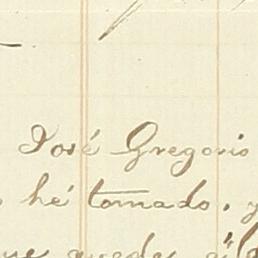 José Gregorio
hé tomado. y
que quede